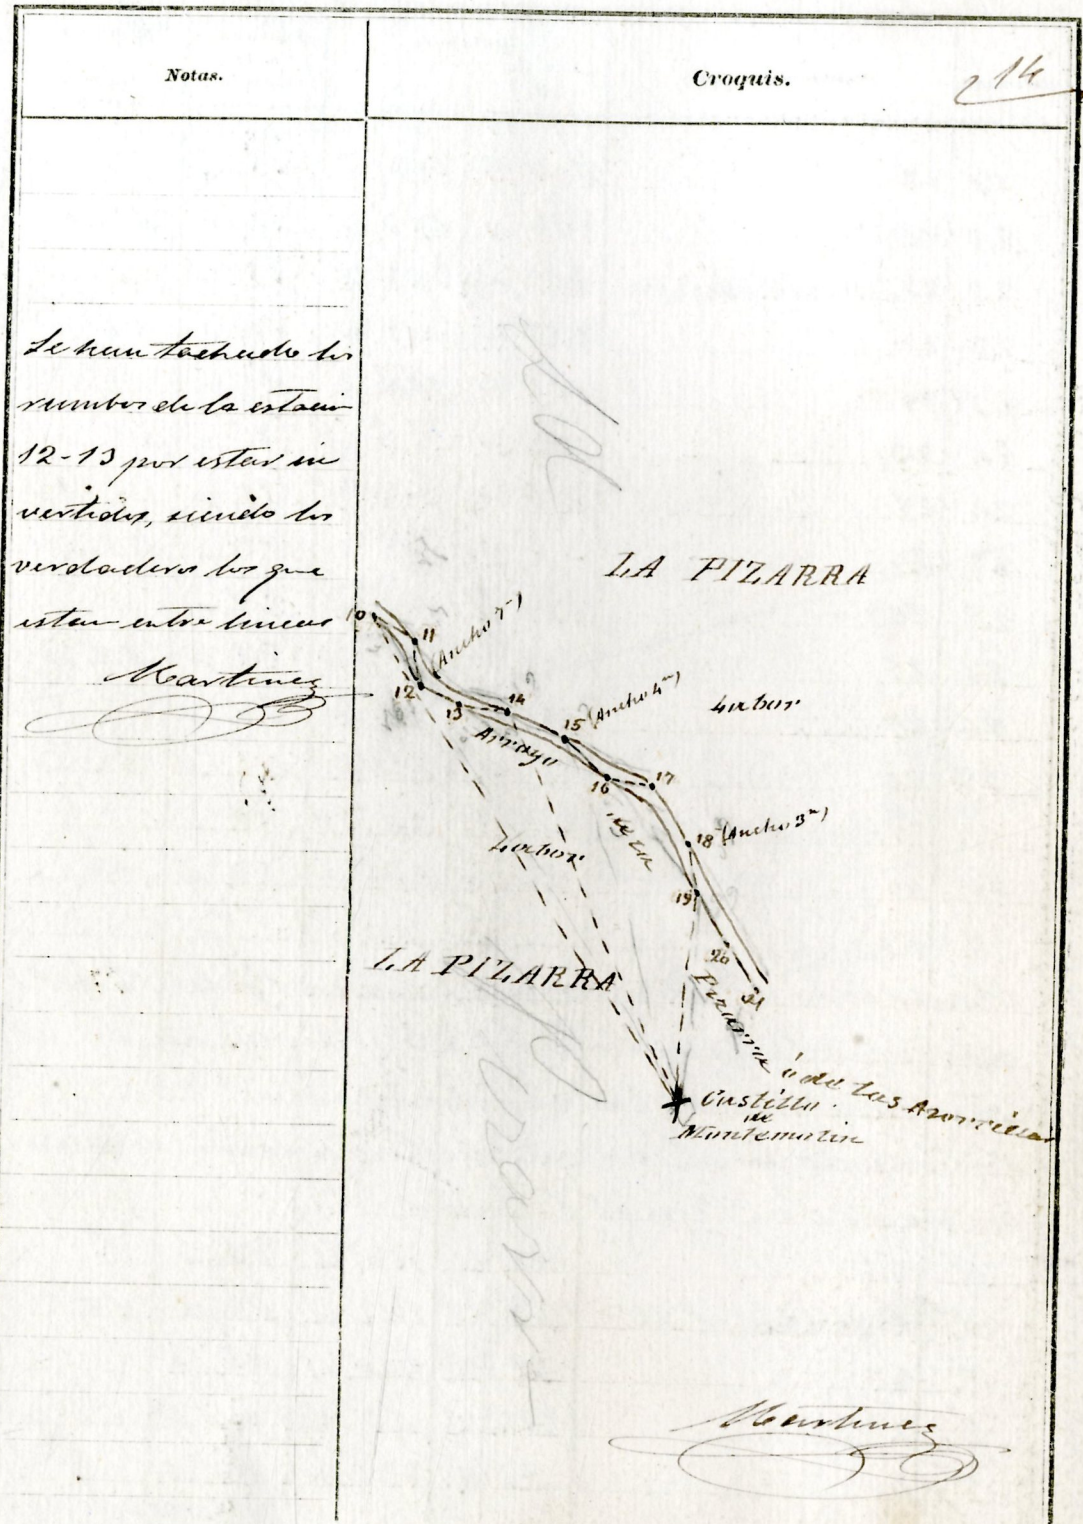 Notas.
Croquis.
14
Se han tachado los
rumbos de la estacion
12-13 por estar in
vertidos, siendo los
verdaderos los que
estan entre lineas
Martinez
LA PIZARRA
10
11
(Ancho 7m)
12
13
14
15 (Ancho 4m)
Labor
Arroyo
16
17
de la
18 (Ancho 3m)
Labor
19
20
LA PIZARRA
21
Pizarra ó de las Azorrillas
Castillo
de
Montemolin
La
Pizarra
Martinez